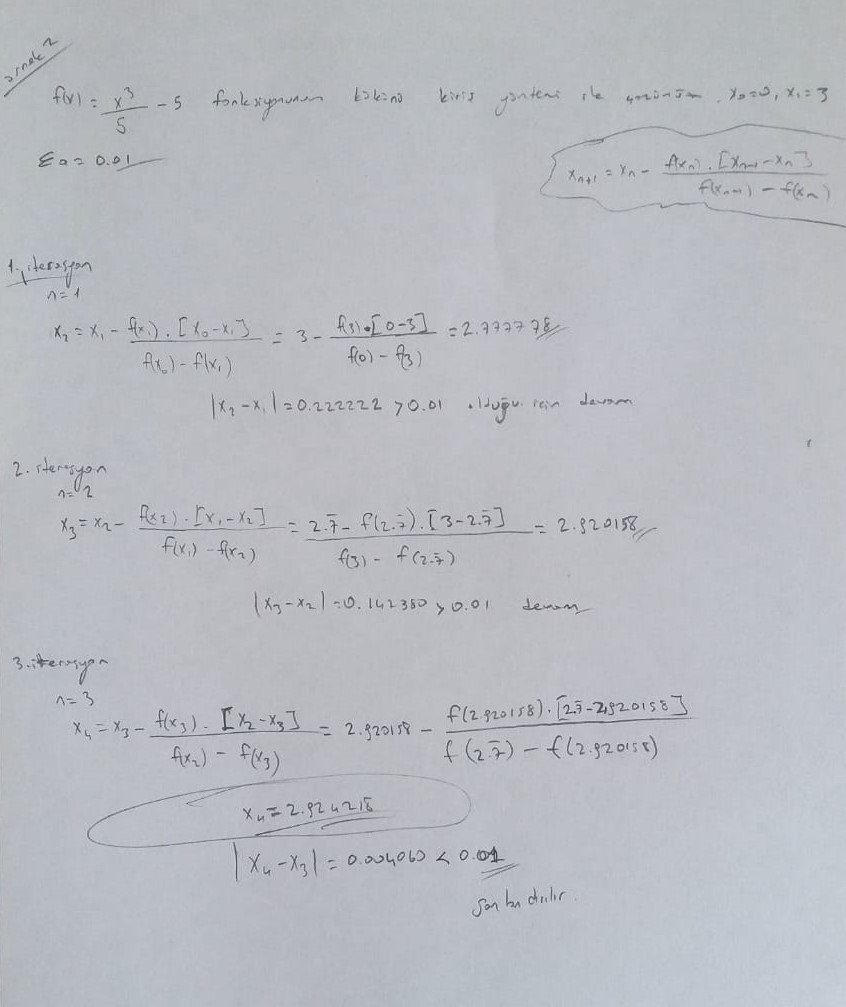 örnek 2
f(x) = x³/5 - 5 fonksiyonunun kökünü kiriş yöntemi ile çözünüz. x₀=0, x₁=3
Ea = 0.01
xₙ₊₁ = xₙ - f(xₙ).[xₙ₋₁-xₙ] / f(xₙ₋₁) - f(xₙ)
1. iterasyon
n=1
x₂ = x₁ - f(x₁).[x₀-x₁] / f(x₀) - f(x₁) = 3 - f(3).[0-3] / f(0) - f(3) = 2.777778
|x₂-x₁| = 0.222222 > 0.01 olduğu için devam
2. iterasyon
n=2
x₃ = x₂ - f(x₂).[x₁-x₂] / f(x₁) - f(x₂) = 2.7̄ - f(2.7̄).[3-2.7̄] / f(3) - f(2.7̄) = 2.920158
|x₃-x₂| = 0.142380 > 0.01 devam
3. iterasyon
n=3
x₄ = x₃ - f(x₃).[x₂-x₃] / f(x₂) - f(x₃) = 2.920158 - f(2.920158).[2.7̄-2.920158] / f(2.7̄) - f(2.920158)
x₄ = 2.924218
|x₄-x₃| = 0.004060 < 0.01
son